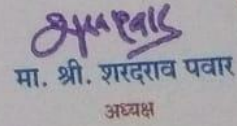 मा. श्री. शरदराव पवार
अध्यक्ष